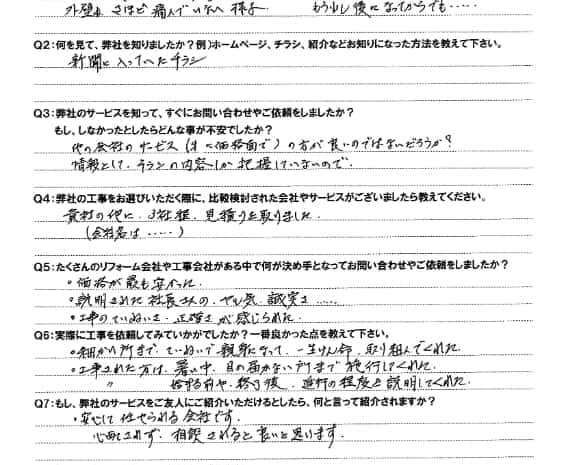 外壁も さほど 痛んでいない 様子 もう少し後になってからでも・・・・・
Q2:何を見て、弊社を知りましたか?例)ホームページ、チラシ、紹介などお知りになった方法を教えて下さい。
新聞に入っていたチラシ
Q3:弊社のサービスを知って、すぐにお問い合わせやご依頼をしましたか?
もし、しなかったとしたらどんな事が不安でしたか?
他の会社のサービス(主に価格面で)の方が良いのではないだろうか?
情報として、チラシの内容しか把握していないので、
Q4:弊社の工事をお選びいただく際に、比較検討された会社やサービスがございましたら教えてください。
貴社の他に、3社程、見積りを取りました。
(会社名は・・・・・)
Q5:たくさんのリフォーム会社や工事会社がある中で何が決め手となってお問い合わせやご依頼をしましたか?
・価格が最も安かった
・説明された社長さんの、ヤル気、誠実さ・・・・・
・工事のていねいさ・正確さが感じられた
Q6:実際に工事を依頼してみていかがでしたか?一番良かった点を教えて下さい。
・細かい所まで、ていねいで親身になって、一生けん命、取り組んでくれた
・工事された方は、暑い中、目の届かない所まで施行してくれた。
〃 始まる前や、終了後、進行の程度を説明してくれた。
Q7:もし、弊社のサービスをご友人にご紹介いただけるとしたら、何と言って紹介されますか?
・安心して任せられる会社です。
心配されず、相談されると良いと思います。